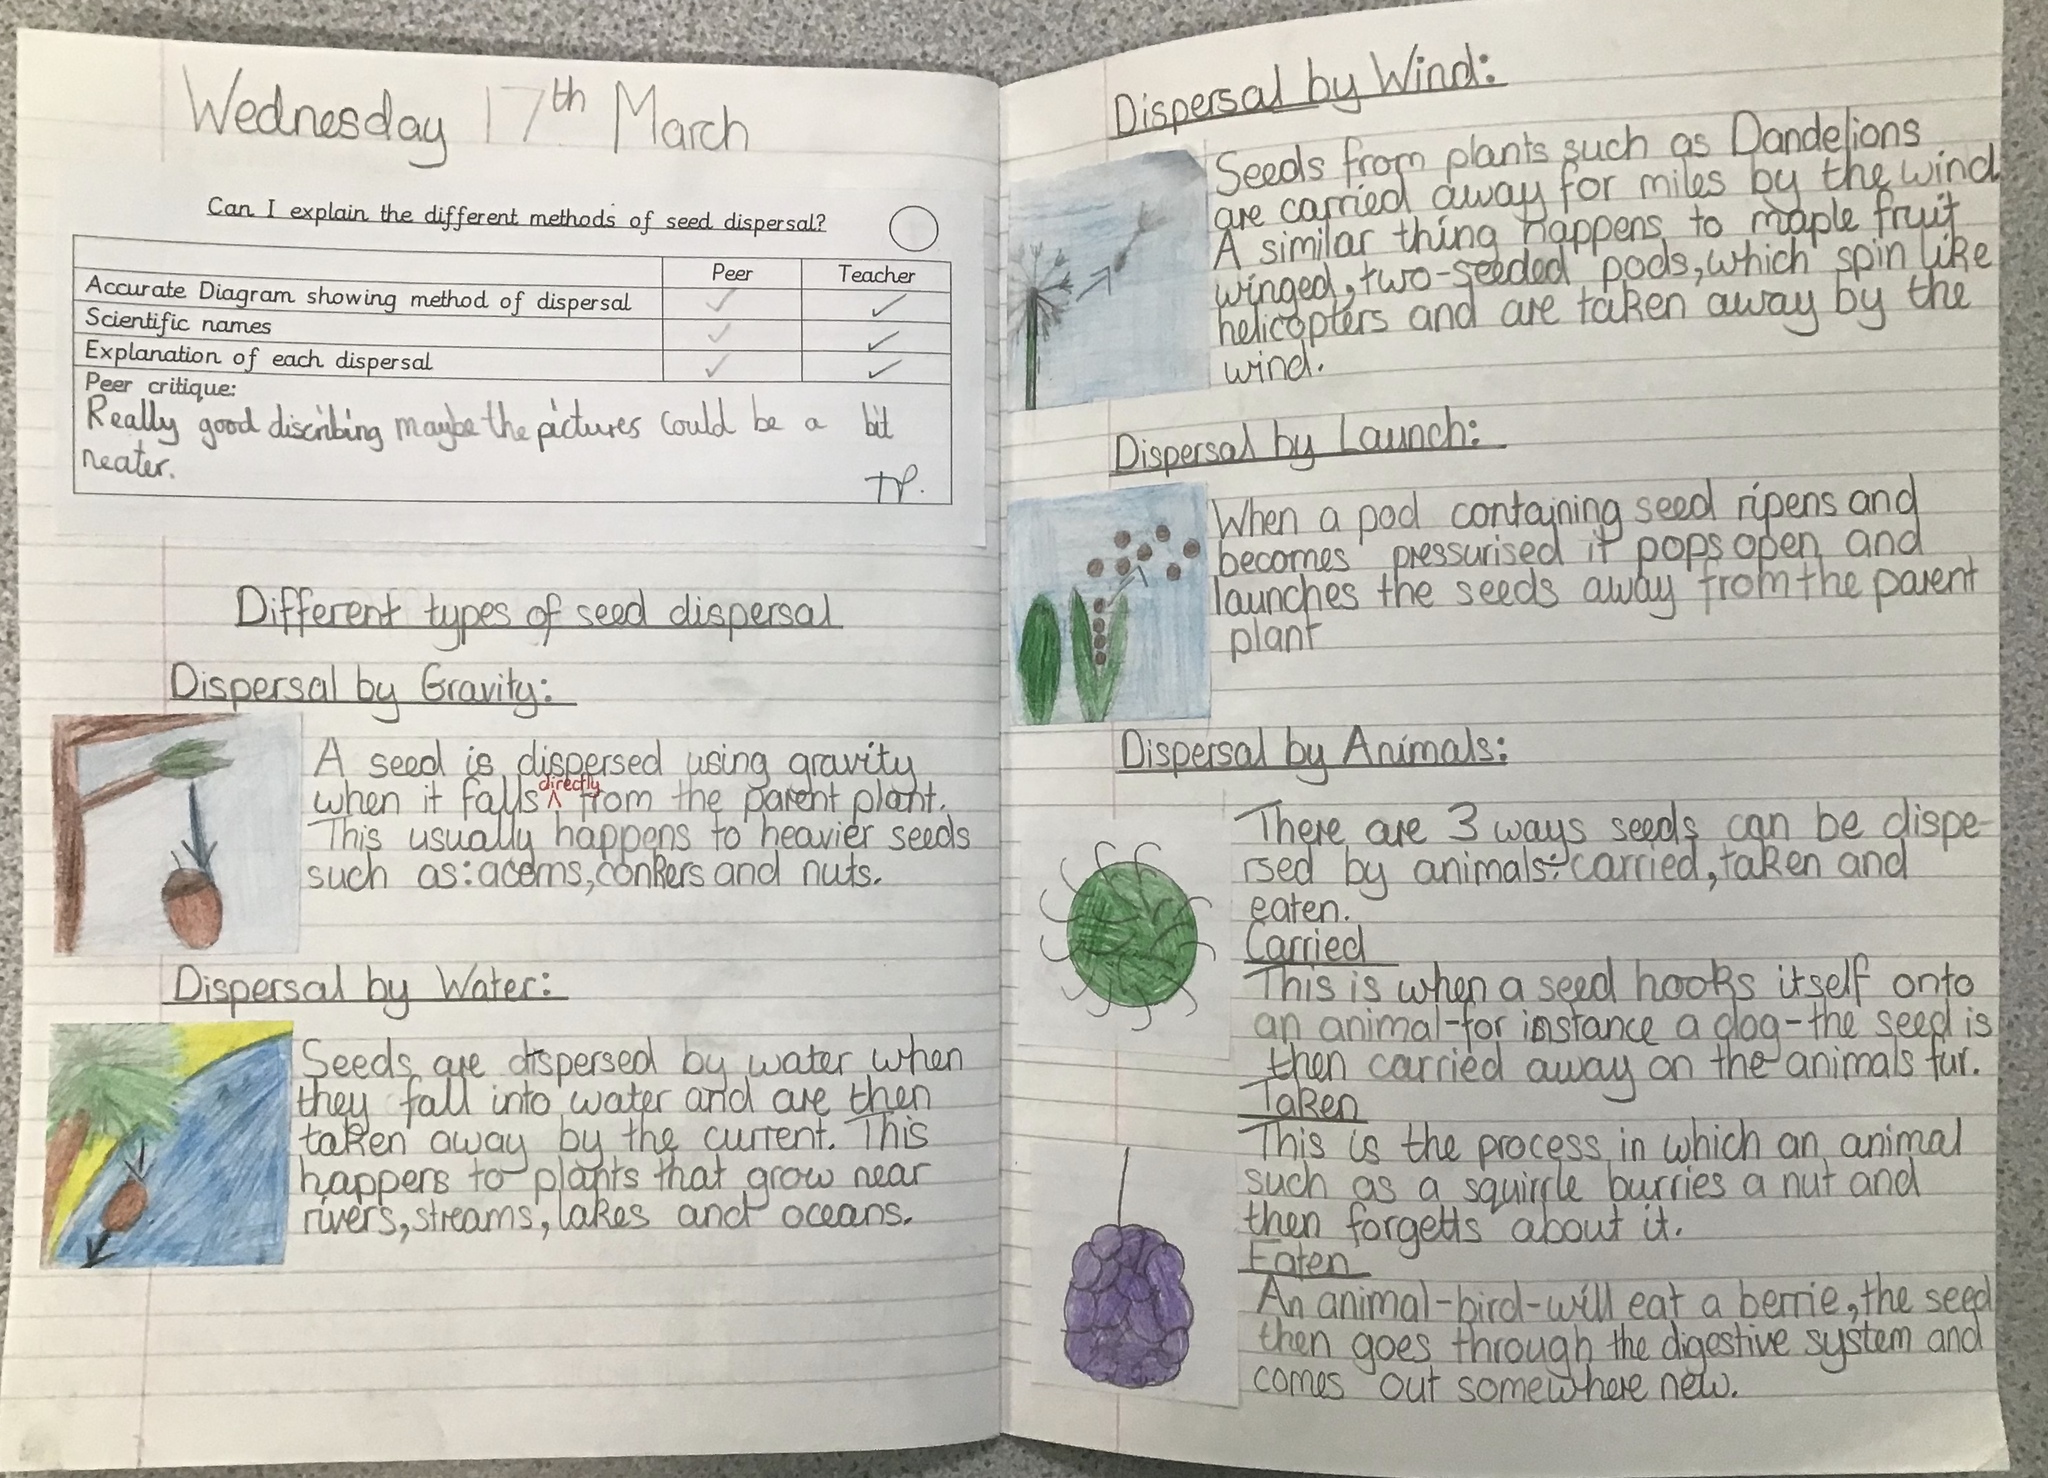 Wednesday 17th March
Can I explain the different methods of seed dispersal?
Peer Teacher
Accurate Diagram showing method of dispersal
Scientific names
Explanation of each dispersal
Peer critique:
Really good discribing maybe the pictures could be a bit
neater.
TP.
Different types of seed dispersal
Dispersal by Gravity:
A seed is dispersed using gravity
when it falls directly from the parent plant.
This usually happens to heavier seeds
such as: acorns, conkers and nuts.
Dispersal by Water:
Seeds are dispersed by water when
they fall into water and are then
taken away by the current. This
happens to plants that grow near
rivers, streams, lakes and oceans.
Dispersal by Wind:
Seeds from plants such as Dandelions
are carried away for miles by the wind.
A similar thing happens to maple fruit
winged, two-seeded pods, which spin like
helicopters and are taken away by the
wind.
Dispersal by Launch:
When a pod containing seed ripens and
becomes pressurised it pops open and
launches the seeds away from the parent
plant
Dispersal by Animals:
There are 3 ways seeds can be dispe-
rsed by animals: carried, taken and
eaten.
Carried
This is when a seed hooks itself onto
an animal-for instance a dog-the seed is
then carried away on the animals fur.
Taken
This is the process in which an animal
such as a squirrle burries a nut and
then forgetts about it.
Eaten
An animal-bird-will eat a berrie, the seed
then goes through the digestive system and
comes out somewhere new.